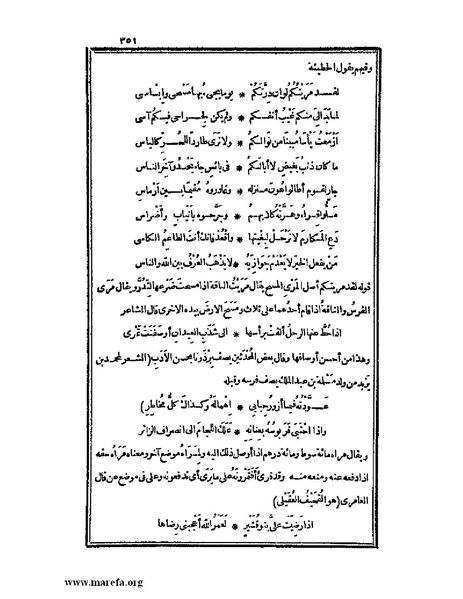 ٣٥١
وفيهم يقول الحطيئة
لقد مريتكم لو أن درتكم * يوما يجىء بها مسحى وإبساسى
لما بدا لى منكم غيب أنفسكم * ولم يكن لجراحى فيكم آسى
أزمعت يأسا مبينا من نوالكم * ولا ترى طاردا للحر كالياس
ما كان ذنب بغيض لا أبا لكم * فى بائس جاء يحدو آخر الناس
جار لقوم أطالوا هون منزله * وغادروه مقيما بين أرماس
ملوا قراه وهرته كلابهم * وجرحوه بأنياب وأضراس
دع المكارم لا ترحل لبغيتها * واقعد فانك أنت الطاعم الكاسى
من يفعل الخير لا يعدم جوازيه * لا يذهب العرف بين الله والناس
قوله لقد مريتكم أصل المرى المسح يقال مريت الناقة اذا مسحت ضرعها لتدر ويقال مرى
الفرس والناقة اذا قام أحدهما على ثلاث ومسح الارض بيده الاخرى قال الشاعر
اذا حط عنها الرحل ألقت برأسها * الى شذب العيدان أو صفنت تمرى
وهذا من أحسن أوصافها وقال بعض المحدثين يصف برذونا بحسن الأدب (الشعر لمحمد بن
يزيد من ولد مسلمة بن عبد الملك يصف فرسه وقبله
عودته فيما أزور حبايبى * إهماله وكذاك كل مخاطر)
واذا احتبى قربوسه بعنانه * علك اللجام الى انصراف الزائر
ويقال مراه مائة سوط ومائة درهم اذا أوصل ذلك اليه ولمراه موضع آخر ومعناه مراه حقه
اذا دفعه عنه ومنعه منه وقد قرئ أفتمرونه على ما يرى أى تدفعونه وعلى فى موضع عن قال
العامرى (هو القحيف العقيلى)
اذا رضيت على بنو قشير * لعمر الله أعجبنى رضاها
www.marefa.org